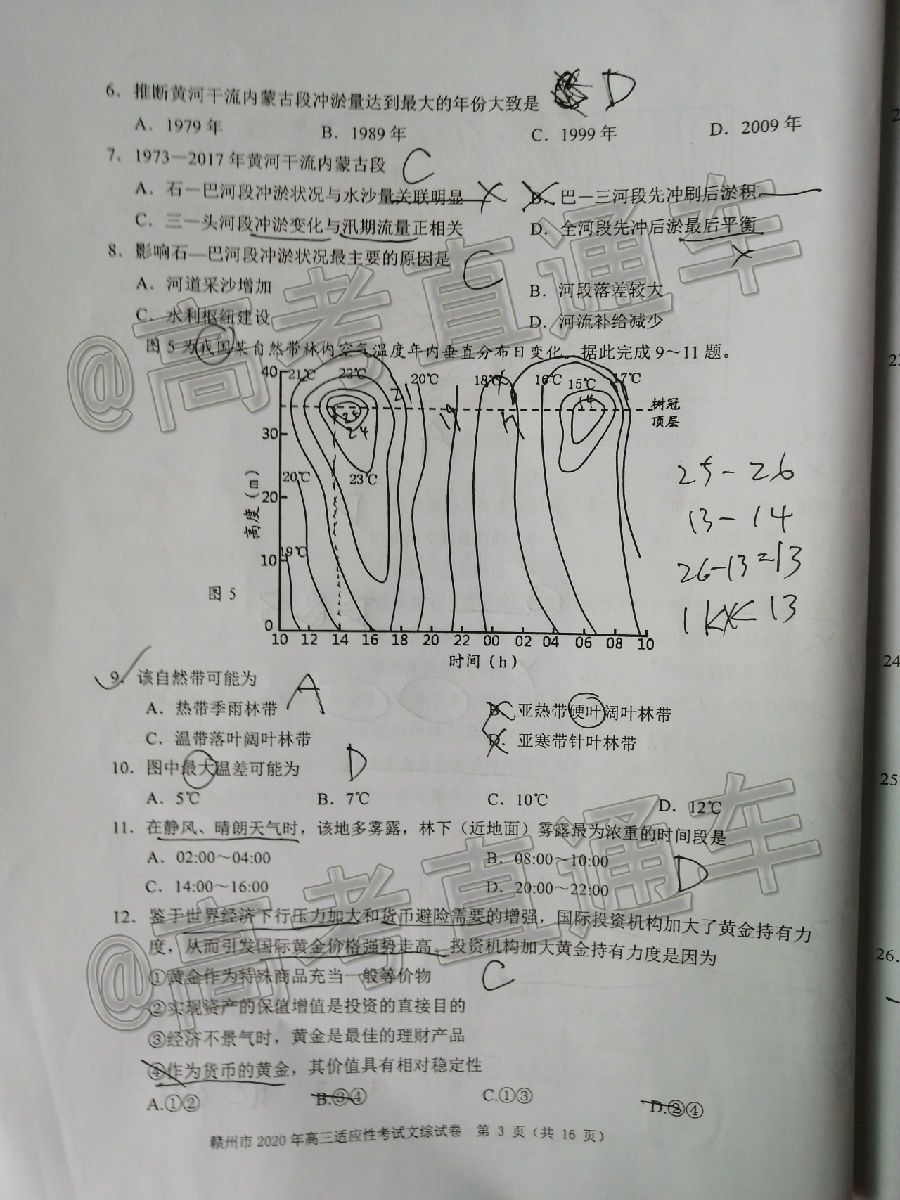 6. 推断黄河干流内蒙古段冲淤量达到最大的年份大致是 D
A. 1979年 B. 1989年 C. 1999年 D. 2009年
7. 1973—2017年黄河干流内蒙古段 C
A. 石—巴河段冲淤状况与水沙量关联明显 B. 巴—三河段先冲刷后淤积
C. 三—头河段冲淤变化与汛期流量正相关 D. 全河段先冲后淤最后平衡
8. 影响石—巴河段冲淤状况最主要的原因是 C
A. 河道采沙增加 B. 河段落差较大
C. 水利枢纽建设 D. 河流补给减少
图5为我国某自然带林内空气温度年内垂直分布日变化。据此完成9~11题。
40 21℃ 23℃ 20℃ 18℃ 16℃ 15℃ 17℃
树冠
顶层
30
24
20℃ 23℃
20
高度(m)
19℃
10
0
图5
10 12 14 16 18 20 22 00 02 04 06 08 10
时间(h)
25-26
13-14
26-13=13
9. 该自然带可能为 A
A. 热带季雨林带 B. 亚热带硬叶阔叶林带
C. 温带落叶阔叶林带 D. 亚寒带针叶林带
10. 图中最大温差可能为 D
A. 5℃ B. 7℃ C. 10℃ D. 12℃
11. 在静风、晴朗天气时，该地多雾露，林下（近地面）雾露最为浓重的时间段是
A. 02:00~04:00 B. 08:00~10:00
C. 14:00~16:00 D. 20:00~22:00 D
12. 鉴于世界经济下行压力加大和货币避险需要的增强，国际投资机构加大了黄金持有力
度，从而引发国际黄金价格强势走高。投资机构加大黄金持有力度是因为
①黄金作为特殊商品充当一般等价物 C
②实现资产的保值增值是投资的直接目的
③经济不景气时，黄金是最佳的理财产品
④作为货币的黄金，其价值具有相对稳定性
A.①② B.③④ C.①③ D.②④
赣州市2020年高三适应性考试文综试卷 第 3 页（共 16 页）
@高考直通车
@高考直通车
24
25
26.